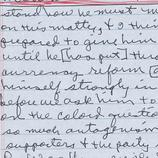 stand how he must
on this matter, & I this
prepared to give him
until he [has put] th
currency reform
himself strongly in
before we ask him to
on the colored quest
so much antagonism
supporters & the party